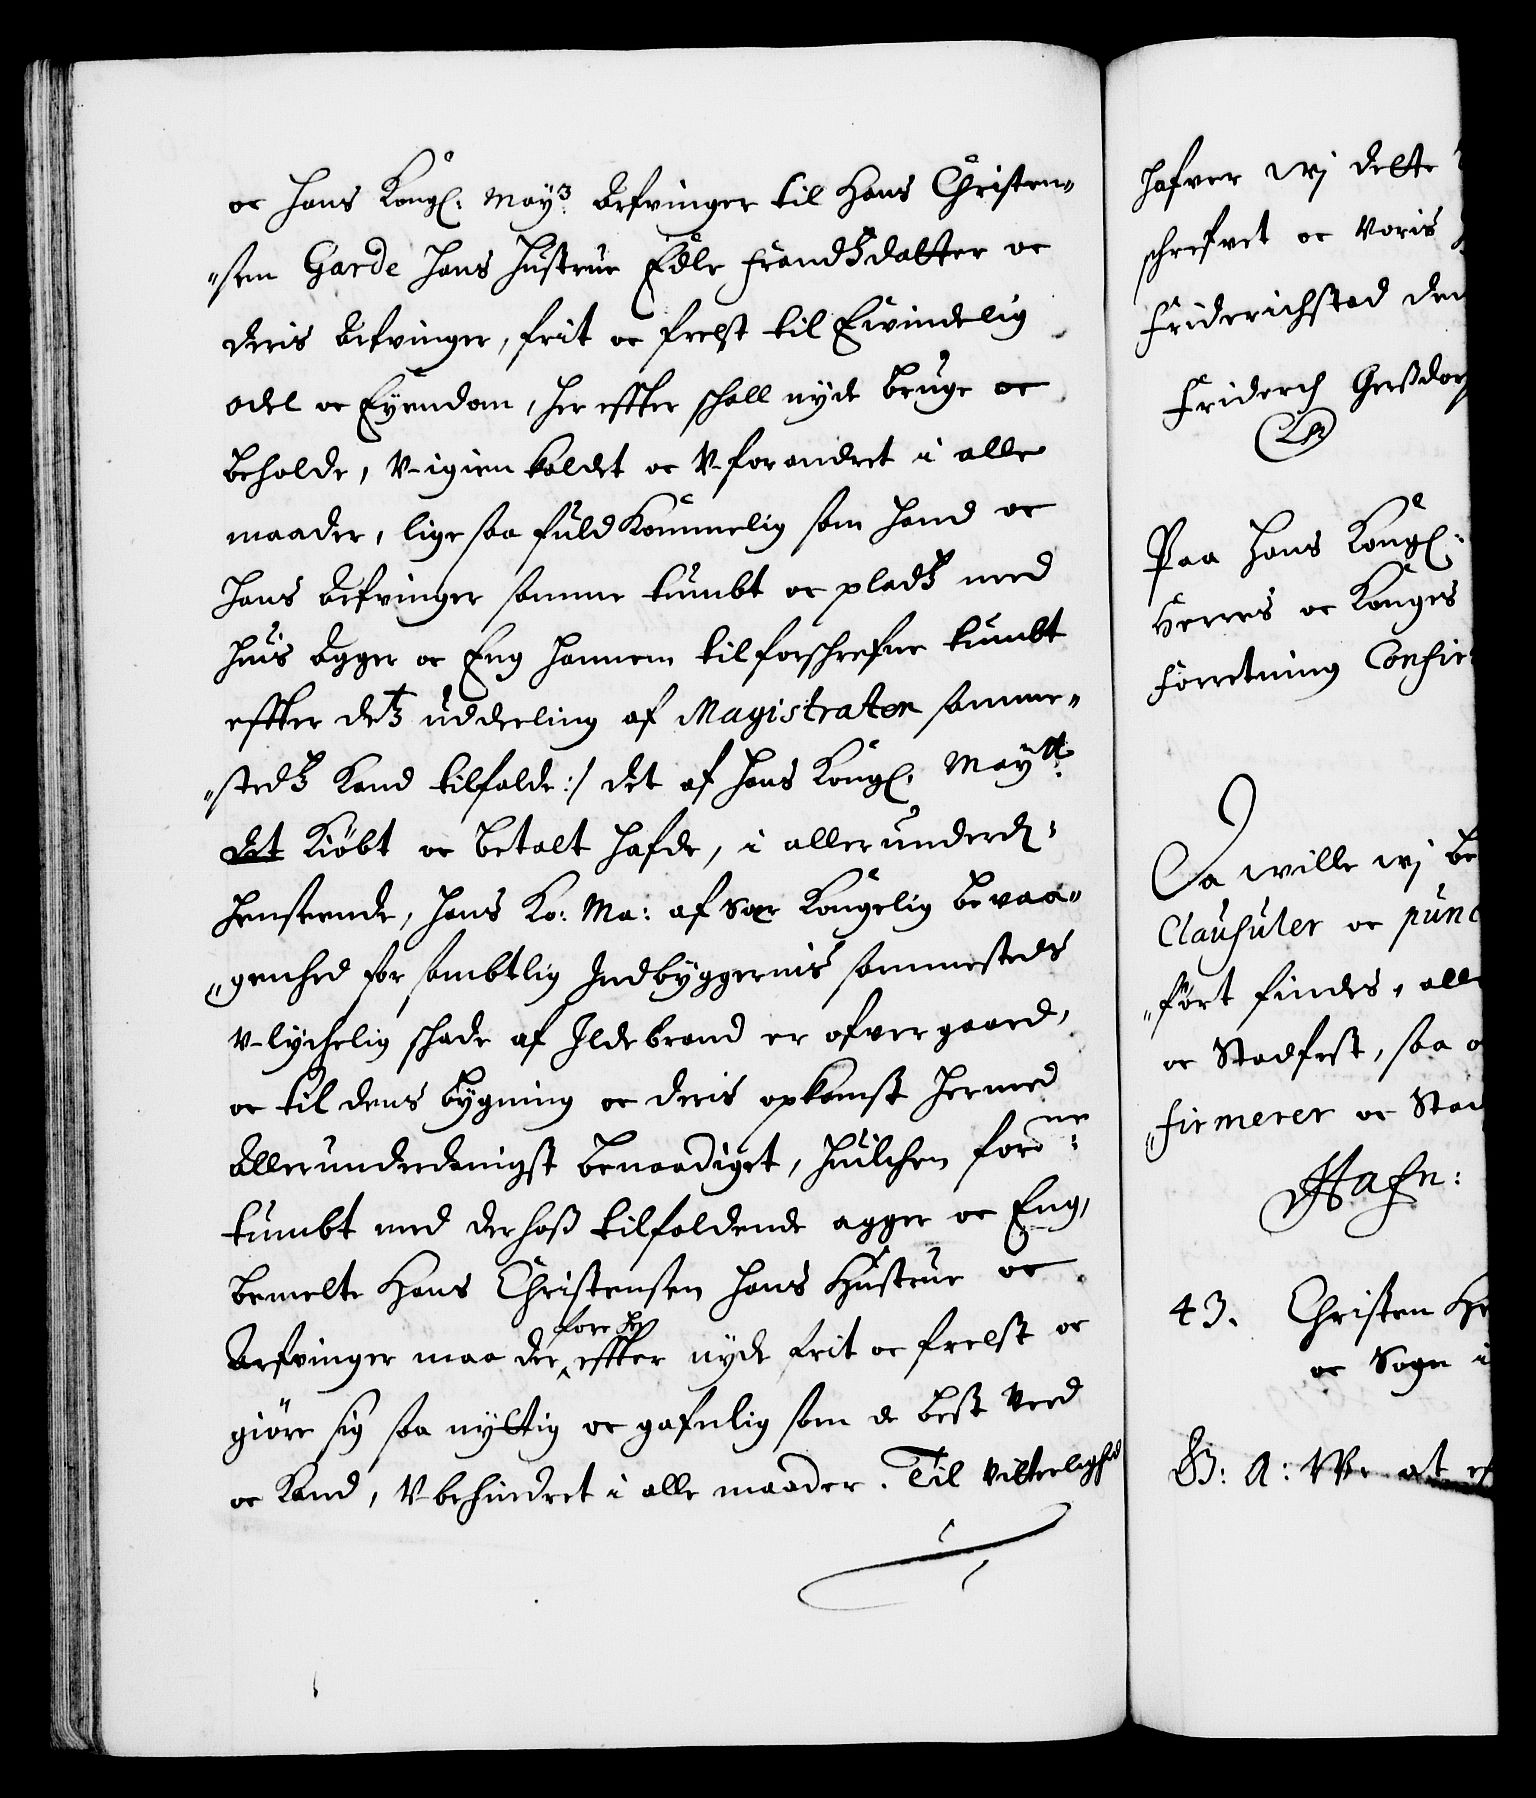 oc hans Kongl. May3. Arfvinger til Hans Christen„
„sen Garde hans hustrue Edle Frandzdatter oc
deris Arfvinger, frit oc frelst til Ewindelig
odel oc Eyendom, her effter schall nyde bruge oc
beholde, V-igien kaldet oc V-forandret i alle
maader, lige saa fuldkommelig som hand oc
hans Arfvinger samme tumbt oc pladz med
huis Agger oc Eng hannem til forschrefne tumbt
effter detz uddeeling af Magistraten samme„
„stedz kand tilfalde :/ det af hans Kongl. Maytt.
det kiöbt oc betalt hafde, i allerunderd:
henseende, hans Ko: Ma: af Sær Kongelig bevaa„
„genhed for sambtlig Indbyggernis sammesteds
V-lychelig schade af Ildebrand er ofvergaaed,
oc til dens bygning oc deris opkomst hermed
Allerunderdanigst benaadiget, huilchen forne:
tumbt med derhoß tilfaldende agger oc Eng,
bemelte Hans Christensen hans Hustrue oc
Arfvinger maa der for her effter nyde frit oc frelst oc
giöre sig saa nyttig oc gafnlig som de best Veed
oc Kand, V-behindret i alle maader. Til Vitterlighed
hafver wj dette
schrefvet oc Voris
Friderichstad den
Friderich Gerßdorf
LS.
Paa hans Kongl:
Herres oc Konges
Forretning Confir„
Da wille wj be
Clausuler oc punc
„fört findes, alle
oc Stadfest, saa o
„firmerer oc Stad
Hafn:
43. Christen He
oc Sogn i
G: A: W: at ef